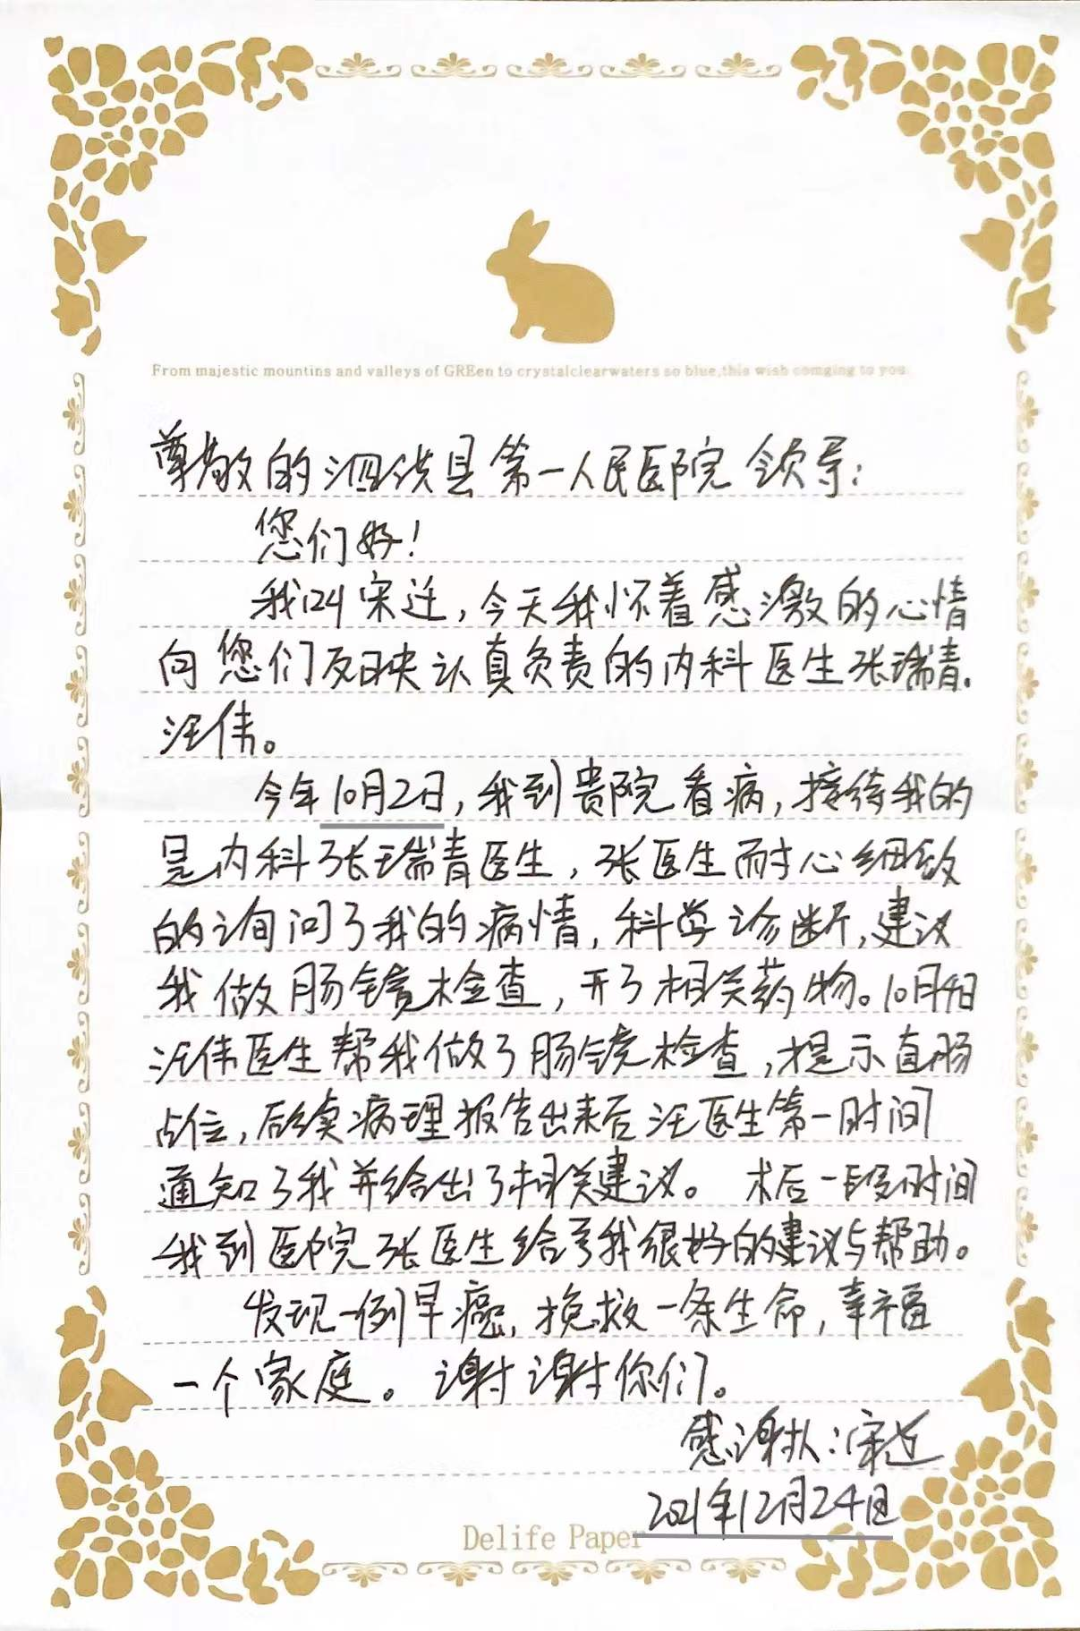 From majestic mountins and valleys of GREen to crystalclearwaters so blue,this wish comging to you.
尊敬的泗洪县第一人民医院领导:
您们好!
我叫宋迁,今天我怀着感激的心情
向您们反映认真负责的内科医生张瑞青.
汪伟。
今年10月2日,我到贵院看病,接待我的
是内科张瑞青医生,张医生耐心细致
的询问了我的病情,科学诊断,建议
我做肠镜检查,开了相关药物。10月4日
汪伟医生帮我做了肠镜检查,提示直肠
占位,后续病理报告出来后汪医生第一时间
通知了我并给出了相关建议。术后一段时间
我到医院张医生给予我很好的建议与帮助。
发现一例早癌,挽救一条生命,幸福
一个家庭。谢谢你们。
感谢人:宋迁
2021年12月24日
Delife Paper